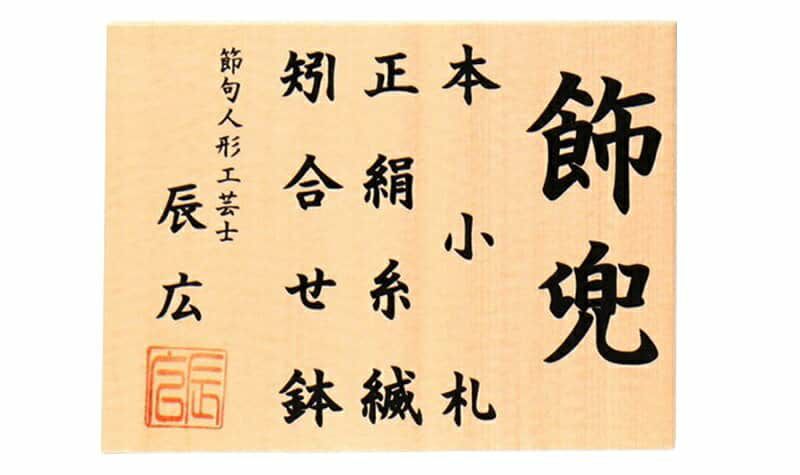 飾兜
本小札
正絹糸縅
矧合せ鉢
節句人形工芸士
辰広
辰広